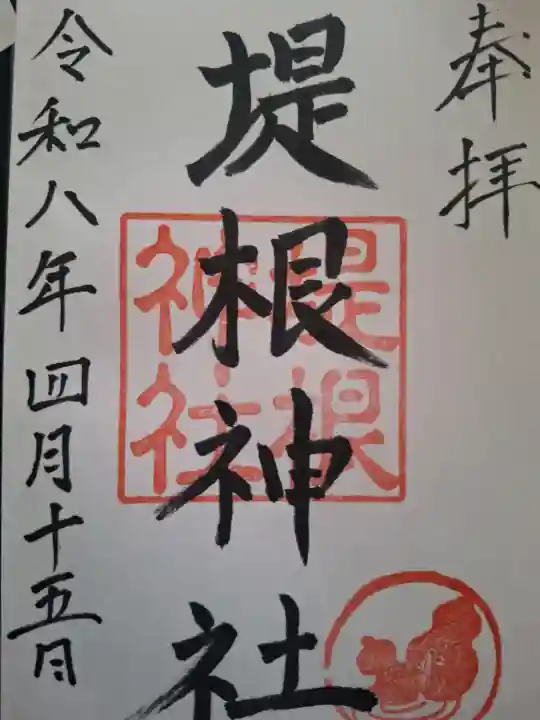 奉拝
堤根神社
堤根
神社
令和八年四月十五日